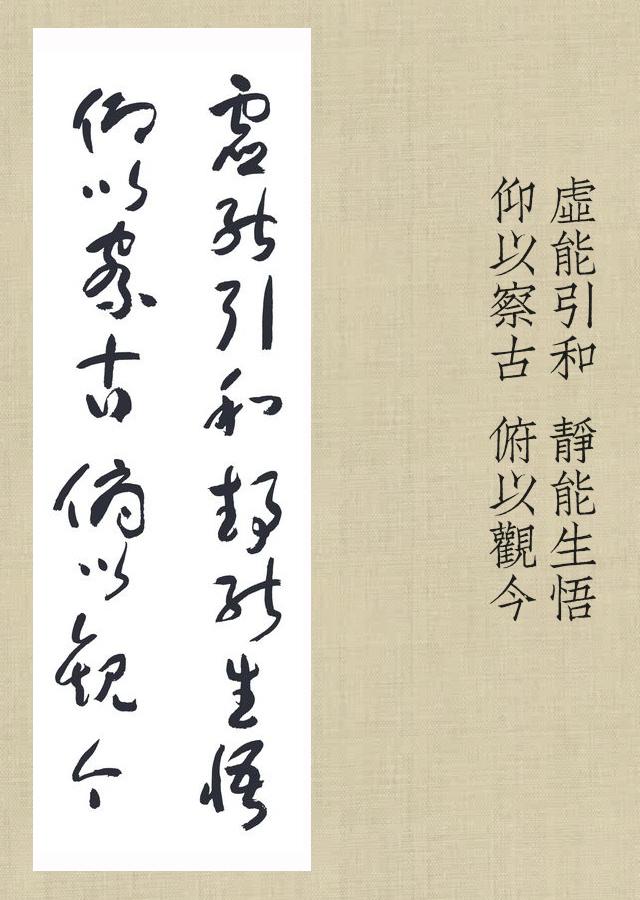 虛能引和 靜能生悟
仰以察古 俯以觀今
虛能引和靜能生悟
仰以察古俯以觀今